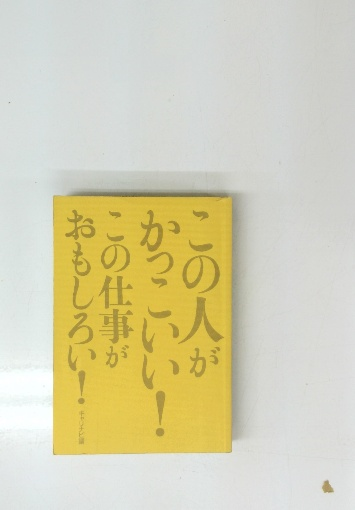 この人が
かっこいい!
この仕事が
おもしろい!